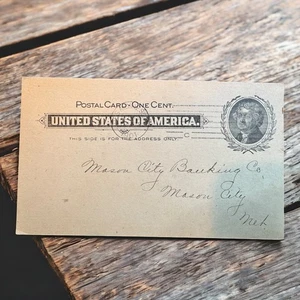 POSTAL CARD - ONE CENT.
UNITED STATES OF AMERICA.
THIS SIDE IS FOR THE ADDRESS ONLY.
C
Mason City Banking Co,
Mason City
Neb